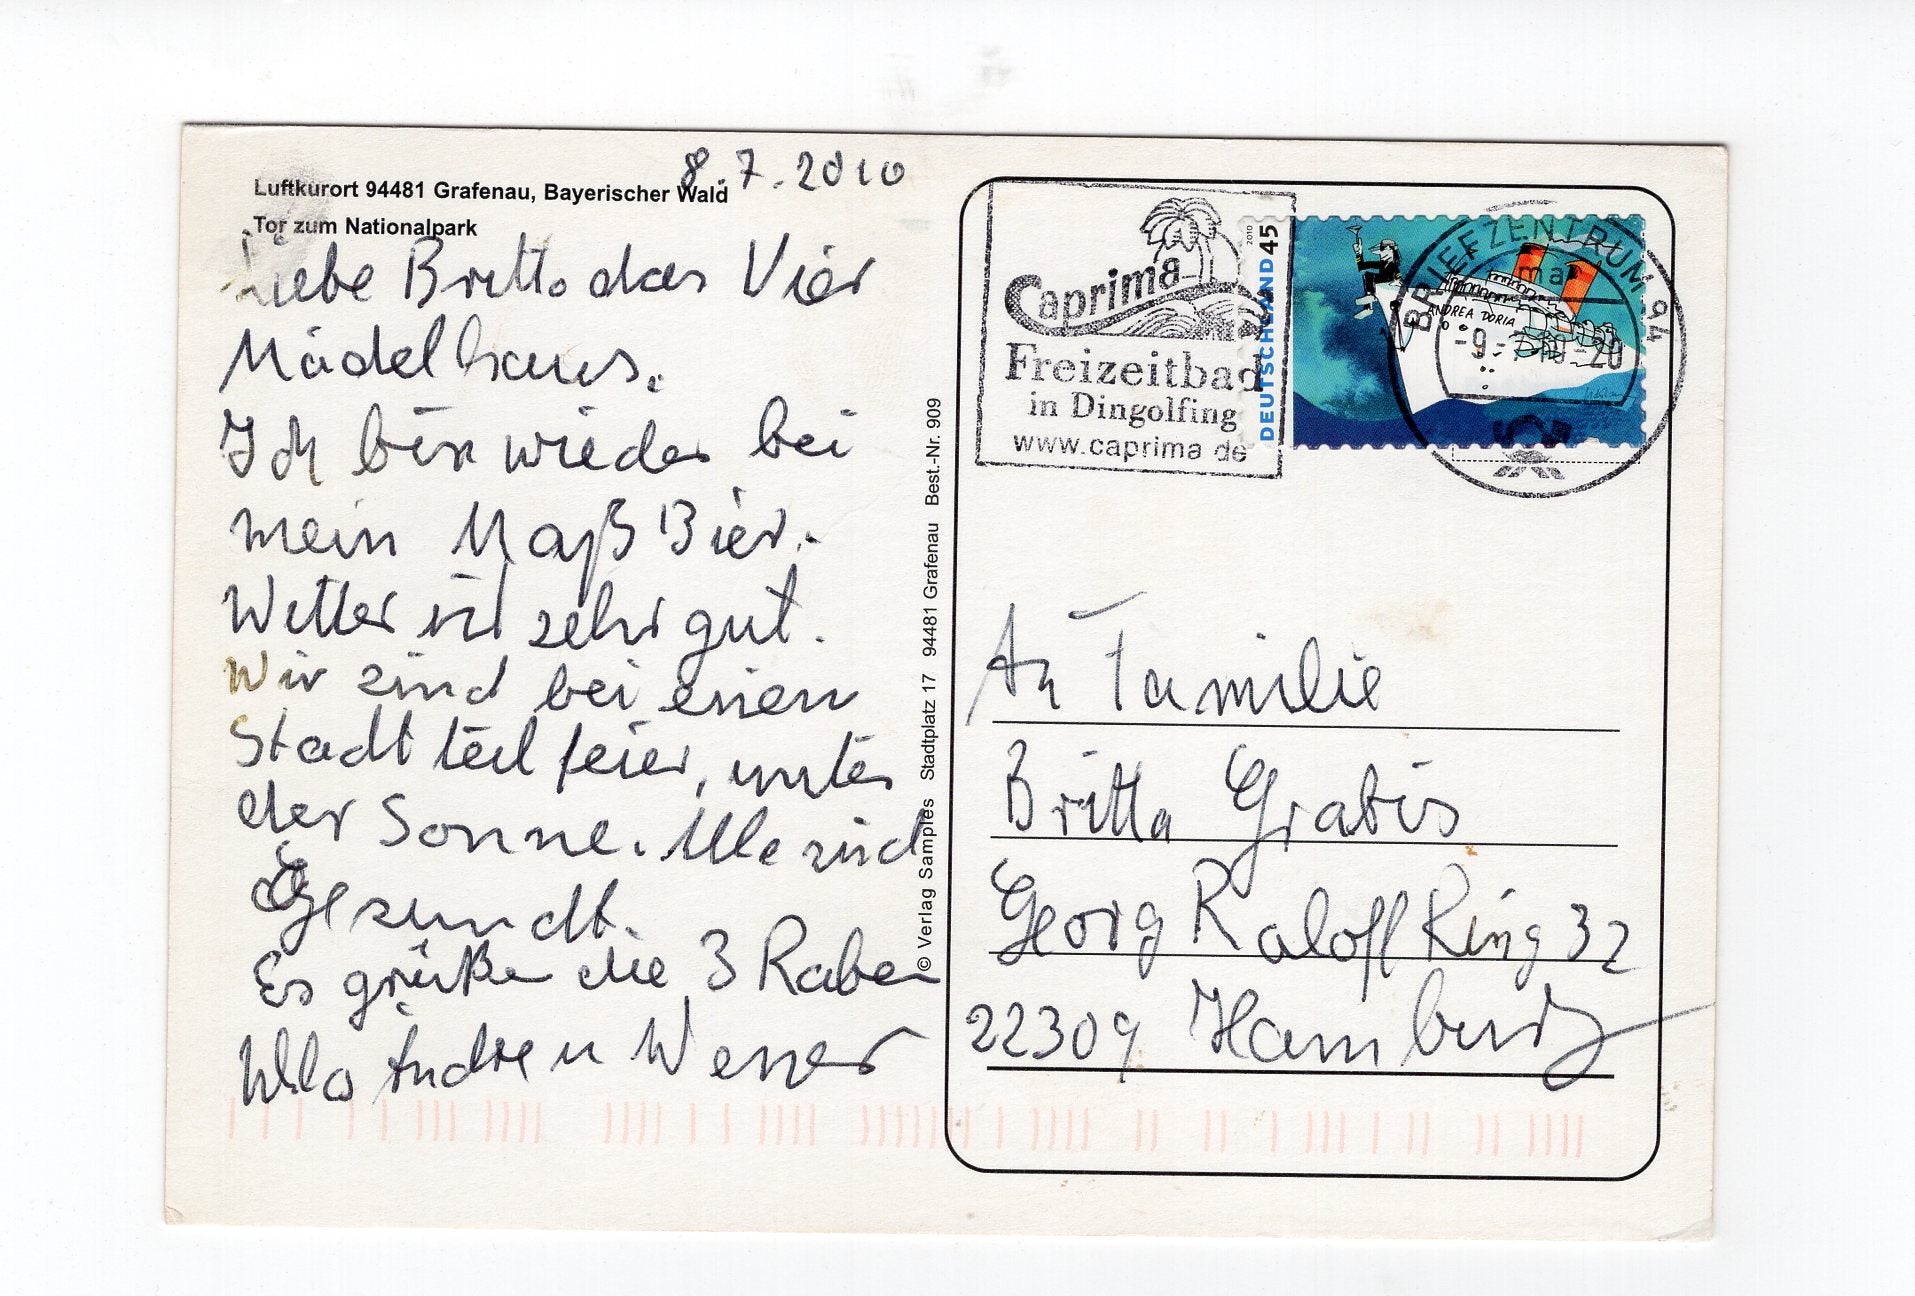 8.7.2010
Luftkurort 94481 Grafenau, Bayerischer Wald
Tor zum Nationalpark
Liebe Britta das Vier
Mädelhaus.
Ich bin wieder bei
mein Maß Bier.
Wetter ist sehr gut.
Wir sind bei einen
Stadtteilfeier, unter
der Sonne. Alle sind
Gesundt.
Es grüße die 3 Raben
Andre u Werner
© Verlag Samples Stadtplatz 17 94481 Grafenau Best.-Nr. 909
Caprima
Freizeitbad
in Dingolfing
www.caprima.de
DEUTSCHLAND 45
2010
ANDREA DORIA
BRIEFZENTRUM 94
ma
An Familie
Britta Grabis
Georg Raloff Ring 32
22309 Hamburg